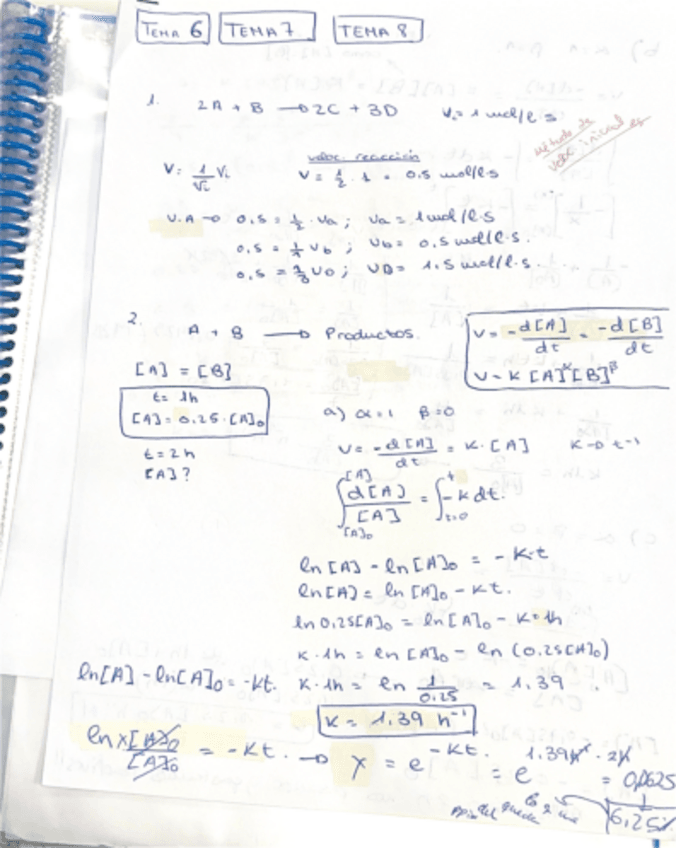 TEMA 6 TEMA 7 TEMA 8
1. 2A + B → 2C + 3D V = 1 mol/l s
método de
veloc. inicial es
veloc. reacción
V = 1/νi Vi V = 1/2 · 1 = 0.5 mol/l·s
V.A → 0.5 = 1/2 · Va ; Va = 1 mol/l·s
0.5 = 1/1 Vb ; Vb = 0.5 mol/l·s.
0.5 = 1/3 VD ; VD = 1.5 mol/l·s.
2. A + B → Productos.
V = -d[A]/dt = -d[B]/dt
V = K [A]^α [B]^β
[A] = [B]
t = 1h
[A] = 0.25·[A]0
t = 2h
[A]?
a) α = 1 β = 0
V = -d[A]/dt = K·[A] K → t⁻¹
∫[A]0[A] d[A]/[A] = ∫t=0t -K dt.
ln[A] - ln[A]0 = -K·t
ln[A] = ln[A]0 - Kt.
ln 0.25[A]0 = ln[A]0 - K·1h
K·1h = ln[A]0 - ln(0.25[A]0)
ln[A] - ln[A]0 = -Kt. K·1h = ln 1/0.25 = 1.39
K = 1.39 h⁻¹
ln x[A]0/[A]0 = -Kt. → X = e^-Kt. = e^1.39h⁻¹·2h = 0,0625
6,25%